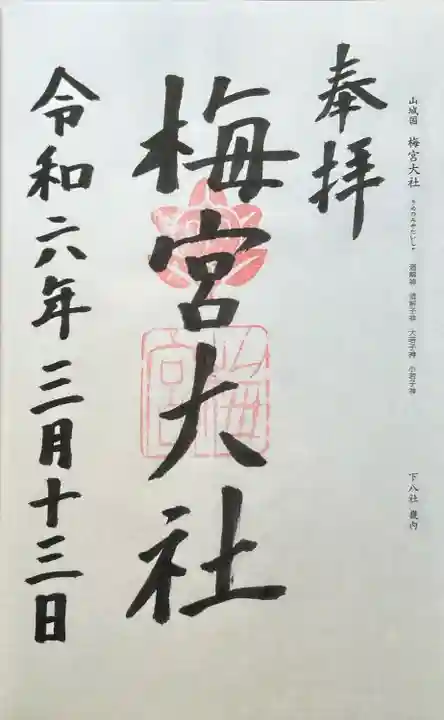 山城国 梅宮大社 うめのみやたいしゃ 酒解神 酒解子神 大若子神 小若子神 下八社 畿内
奉拝
梅宮大社
令和六年三月十三日
梅宮